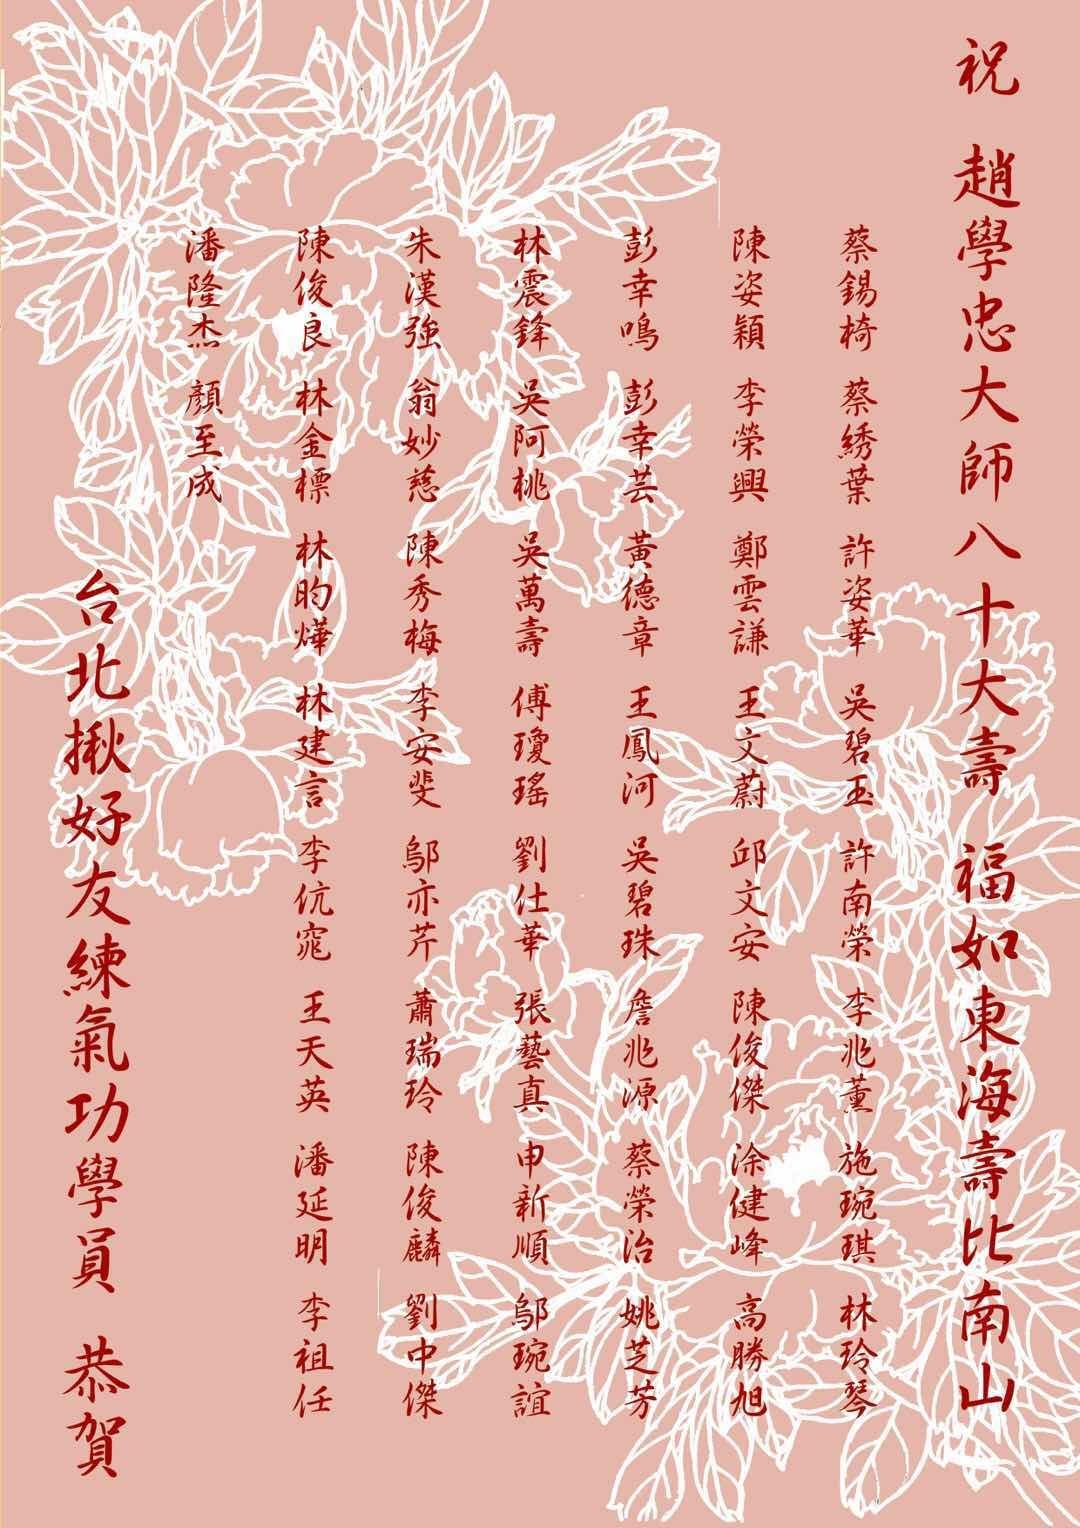 祝 趙學忠大師八十大壽 福如東海壽比南山
蔡錫椅 蔡綉葉 許姿華 吳碧玉 許南榮 李兆薰 施琬琪 林玲琴
陳姿穎 李榮興 鄭雲謙 王文蔚 邱文安 陳俊傑 涂健峰 高勝旭
彭幸鳴 彭幸芸 黃德章 王鳳河 吳碧珠 詹兆源 蔡榮治 姚芝芳
林震鋒 吳阿桃 吳萬壽 傅瓊瑤 劉仕華 張藝真 申新順 鄔琬誼
朱漢強 翁妙慈 陳秀梅 李安斐 鄔亦芹 蕭瑞玲 陳俊麟 劉中傑
陳俊良 林金標 林昀燁 林建言 李伉窕 王天英 潘延明 李祖任
潘隆杰 顏至成
台北揪好友練氣功學員 恭賀